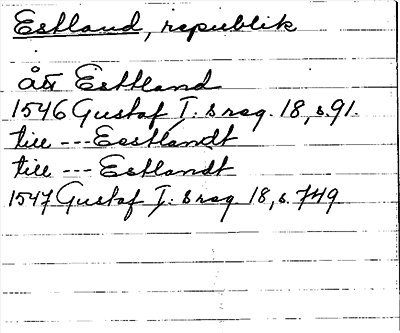 Estland, republik
åt Esttland
1546 Gustaf I:s reg. 18, s. 91.
till --- Eestlandt
till --- Estlandt
1547 Gustaf I:s reg 18, s. 749